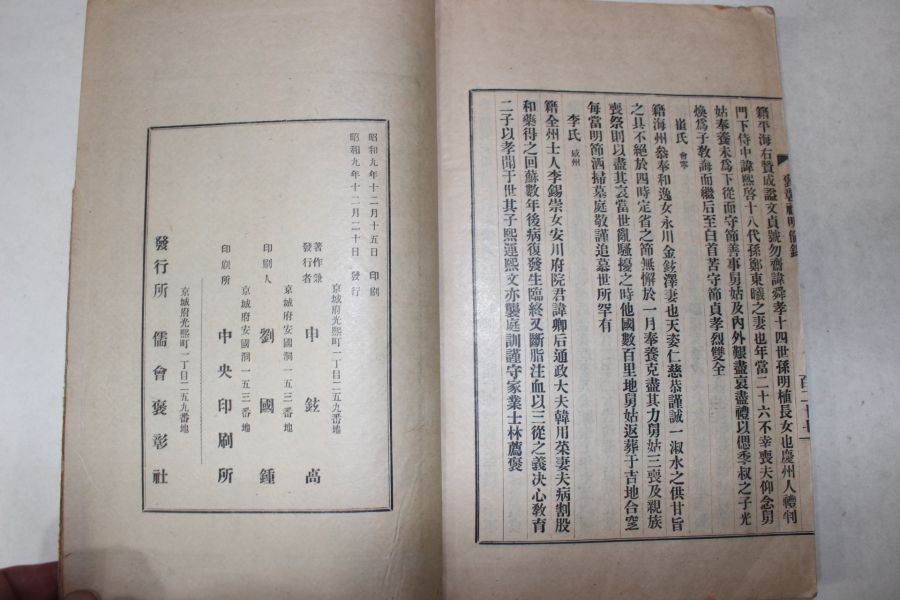 褒彰社明倫錄
籍平海右贊成謚文貞號勿齋諱舜孝十四世孫明植長女也慶州人禮判
門下侍中諱熙啓十八代孫鄭東曦之妻也年當二十六不幸喪夫仰念舅
姑奉養未爲下從而守節善事舅姑及內外艱盡哀盡禮以偲季叔之子光
煥爲子敎誨而繼后至白首苦守節貞孝烈雙全
崔氏 會寧
籍海州叅奉和逸女永川金鉉澤妻也天姿仁慈恭謹誠一淑水之供甘旨
之具不絕於四時定省之節無懈於一月奉養克盡其力舅姑三喪及親族
喪祭則以盡其哀當世亂騷擾之時他國數百里地舅姑返葬于吉地合窆
每當明節洒掃墓庭敬謹追慕世所罕有
李氏 咸州
籍全州士人李錫崇女安川府院君諱卿后通政大夫韓用榮妻夫病割股
和藥得之回蘇數年後病復發生臨終又斷脂注血以三從之義决心敎育
二子以孝聞于世其子熙運熙文亦襲庭訓謹守家業士林薦褒
昭和九年十二月十五日 印刷
昭和九年十二月二十日 發行
京城府光熙町一丁目二五九番地
著作兼發行者 申鉉高
京城府安國洞一五三番地
印刷人 劉國鍾
京城府安國洞一五三番地
印刷所 中央印刷所
京城府光熙町一丁目二五九番地
發行所 儒會褒彰社